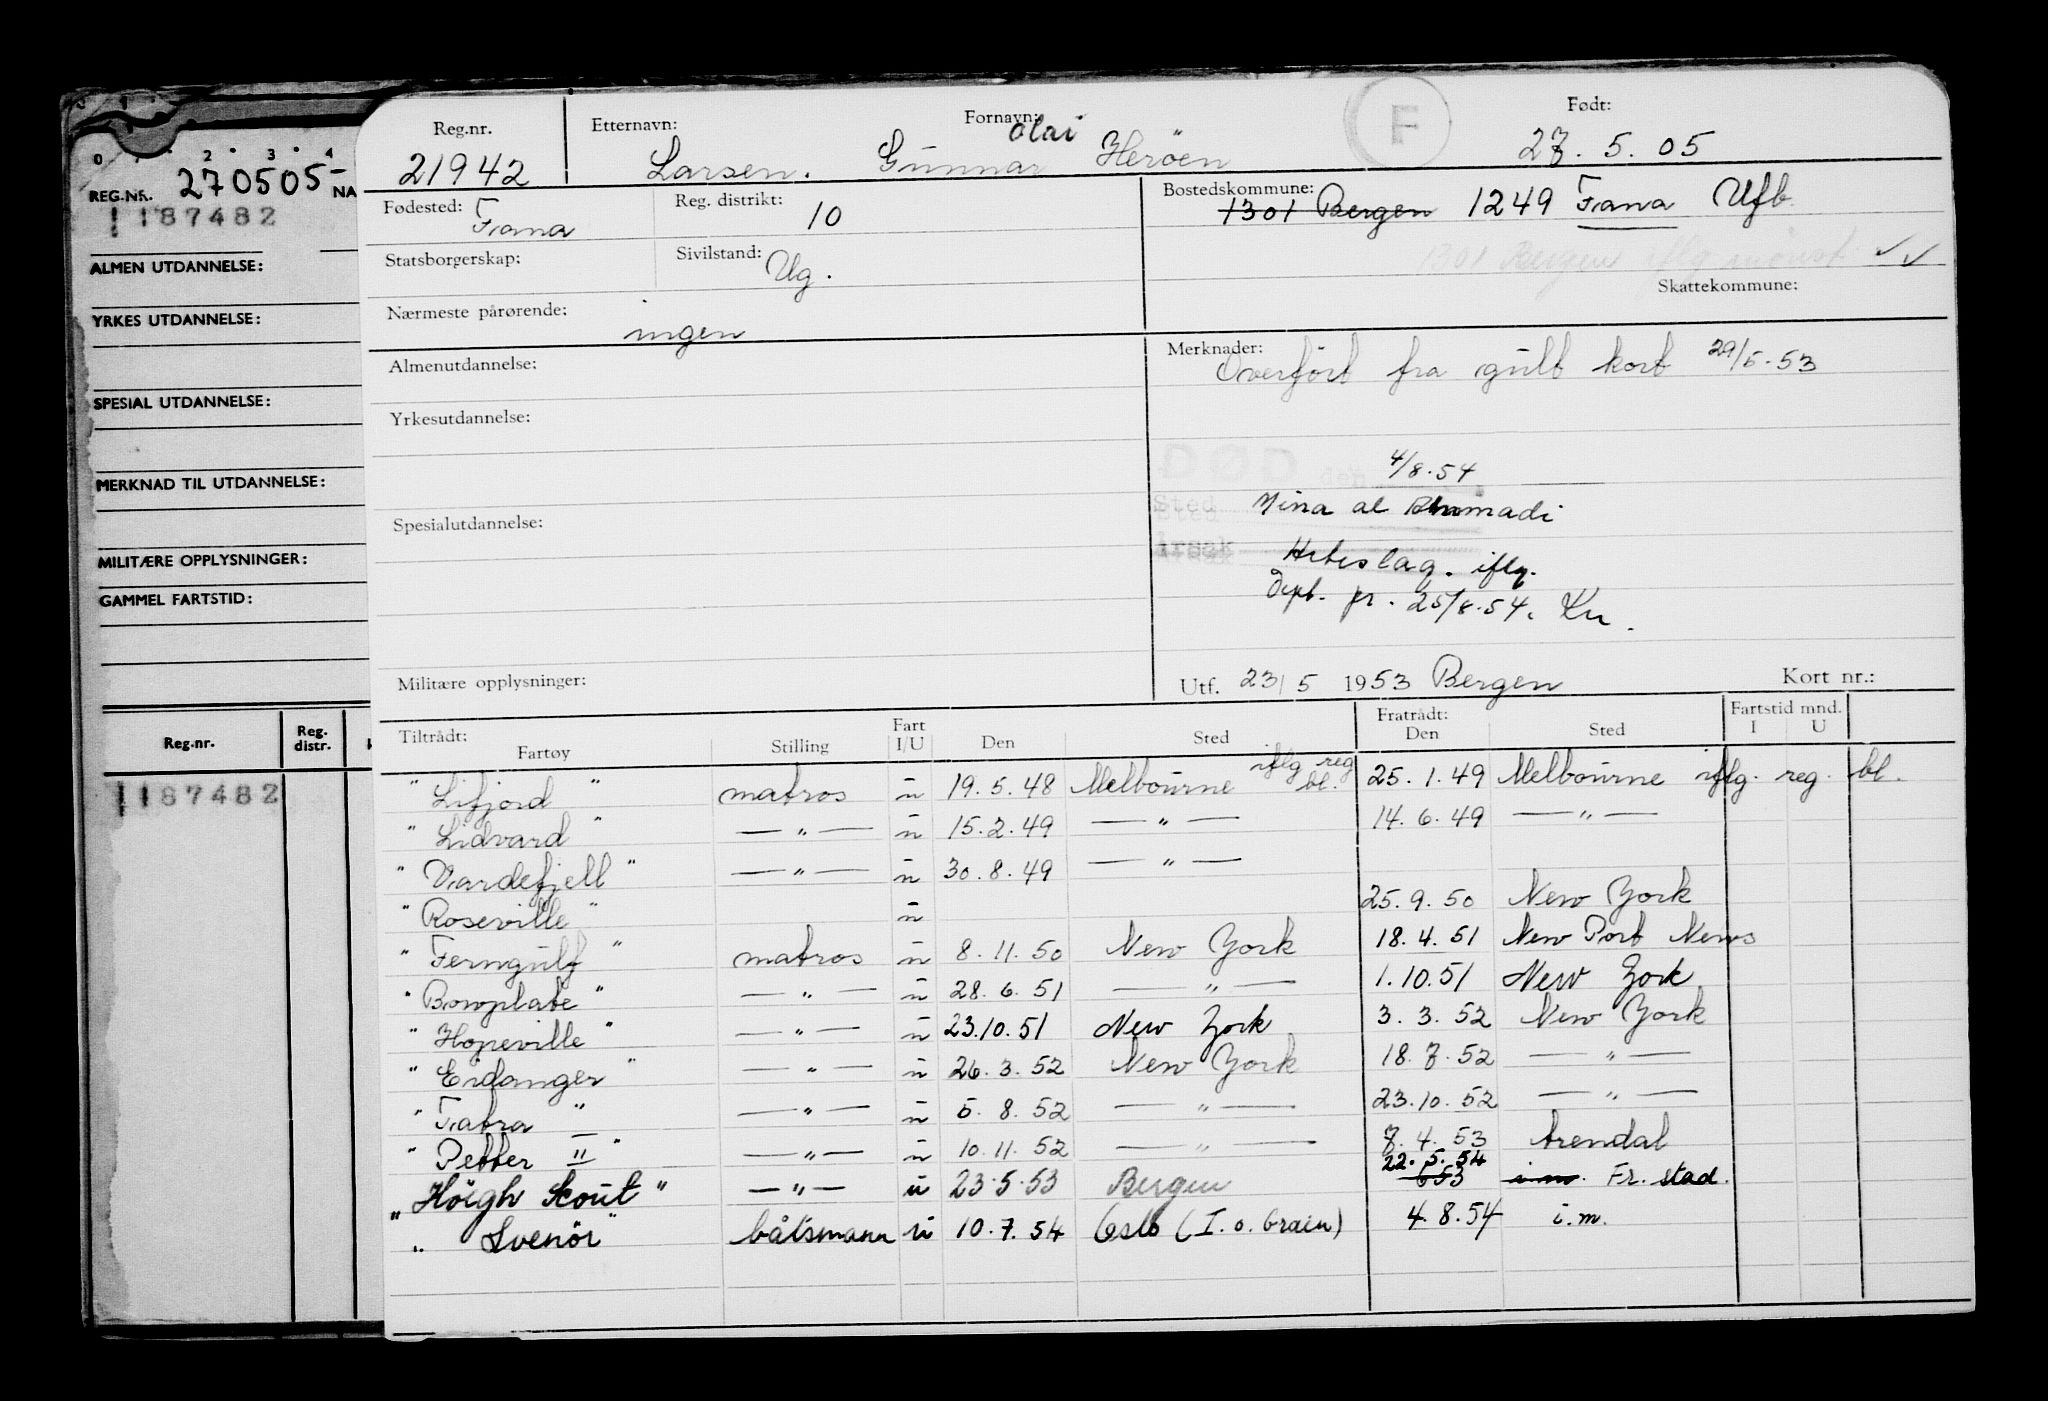 0 1 2 3 4
REG.NR. 270505- NA
1187482
ALMEN UTDANNELSE:
YRKES UTDANNELSE:
SPESIAL UTDANNELSE:
MERKNAD TIL UTDANNELSE:
MILITÆRE OPPLYSNINGER:
GAMMEL FARTSTID:
Reg.nr. Reg. distr.
1187482
Reg.nr. Etternavn: Fornavn: F Født:
Olai
21942 Larsen. Gunnar Heröen 27. 5. 05
Fødested: Fana Reg. distrikt: 10 Bostedskommune: 1301 Bergen 1249 Fana Ufb.
Statsborgerskap: Sivilstand: Ug. 1301 Bergen iflg mönst
Skattekommune:
Nærmeste pårørende: ingen
Almenutdannelse: Merknader: Overfört fra gult kort 29/5-53
Yrkesutdannelse:
DØD den 4/8.54
Sted Mina al
Spesialutdannelse:
Årsak Heteslag. iflg.
Dept. pr. 25/8.54. Kn.
Militære opplysninger: Utf. 23/5 1953 Bergen Kort nr.:
Tiltrådt: Fartøy Stilling Fart I/U Den Sted Fratrådt: Den Sted Fartstid mnd. I U
"Lifjord" matros u 19. 5. 48 Melbourne iflg reg bl. 25. 1. 49 Melbourne iflg. reg. bl.
"Lidvard" — " — u 15. 2. 49 — " — 14. 6. 49 — " —
"Vardefjell" — " — u 30. 8. 49 — " —
"Roseville" u 25. 9. 50 New York
"Ferngulf" matros u 8. 11. 50 New York 18. 4. 51 New Port News
"Bowplate" — " — u 28. 6. 51 — " — 1. 10. 51 New York
"Hopeville" — " — u 23. 10. 51 New York 3. 3. 52 New York
"Eidanger" — " — u 26. 3. 52 New York 18. 7. 52 — " —
"Fabra" — " — u 5. 8. 52 — " — 23. 10. 52 — " —
"Petter II" — " — u 10. 11. 52 — " — 7. 4. 53 Arendal
"Höigh Scout" — " — u 23. 5. 53 Bergen 22. 5. 54 653 i.m. Fr.stad.
"Svenör" båtsmann u 10. 7. 54 Oslo (I. o. Grain) 4. 8. 54 i.m.